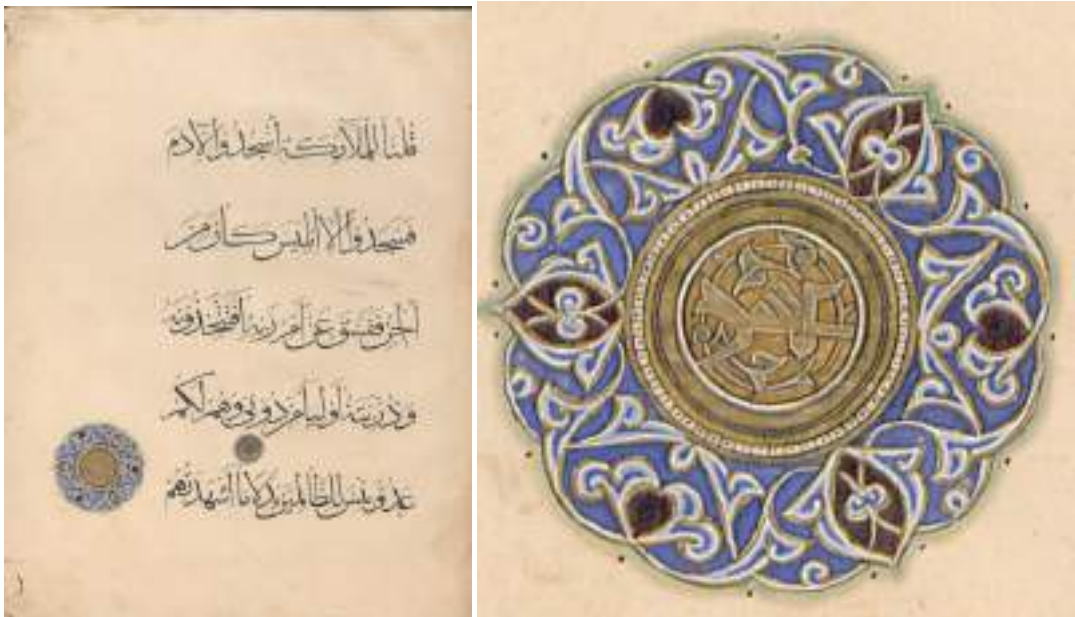 قلنا للملائكة أسجدوا لادم
فسجدوا ألا ابليس كان من
الجن ففسق عن أمر ربه أفتتخذونه
وذريته أوليا من دوني وهم لكم
عدو بئس للظالمين بدلا ما أشهدتهم